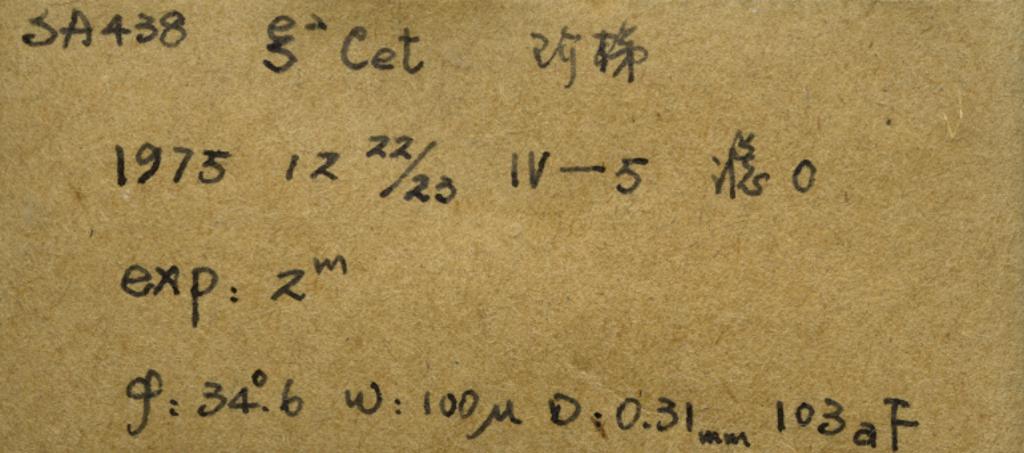 SA438 ξ² Cet 阶梯
1975 12 22/23 IV-5 滤0
exp: 2ᵐ
φ: 34°.6 W: 100μ D: 0.31mm 103aF